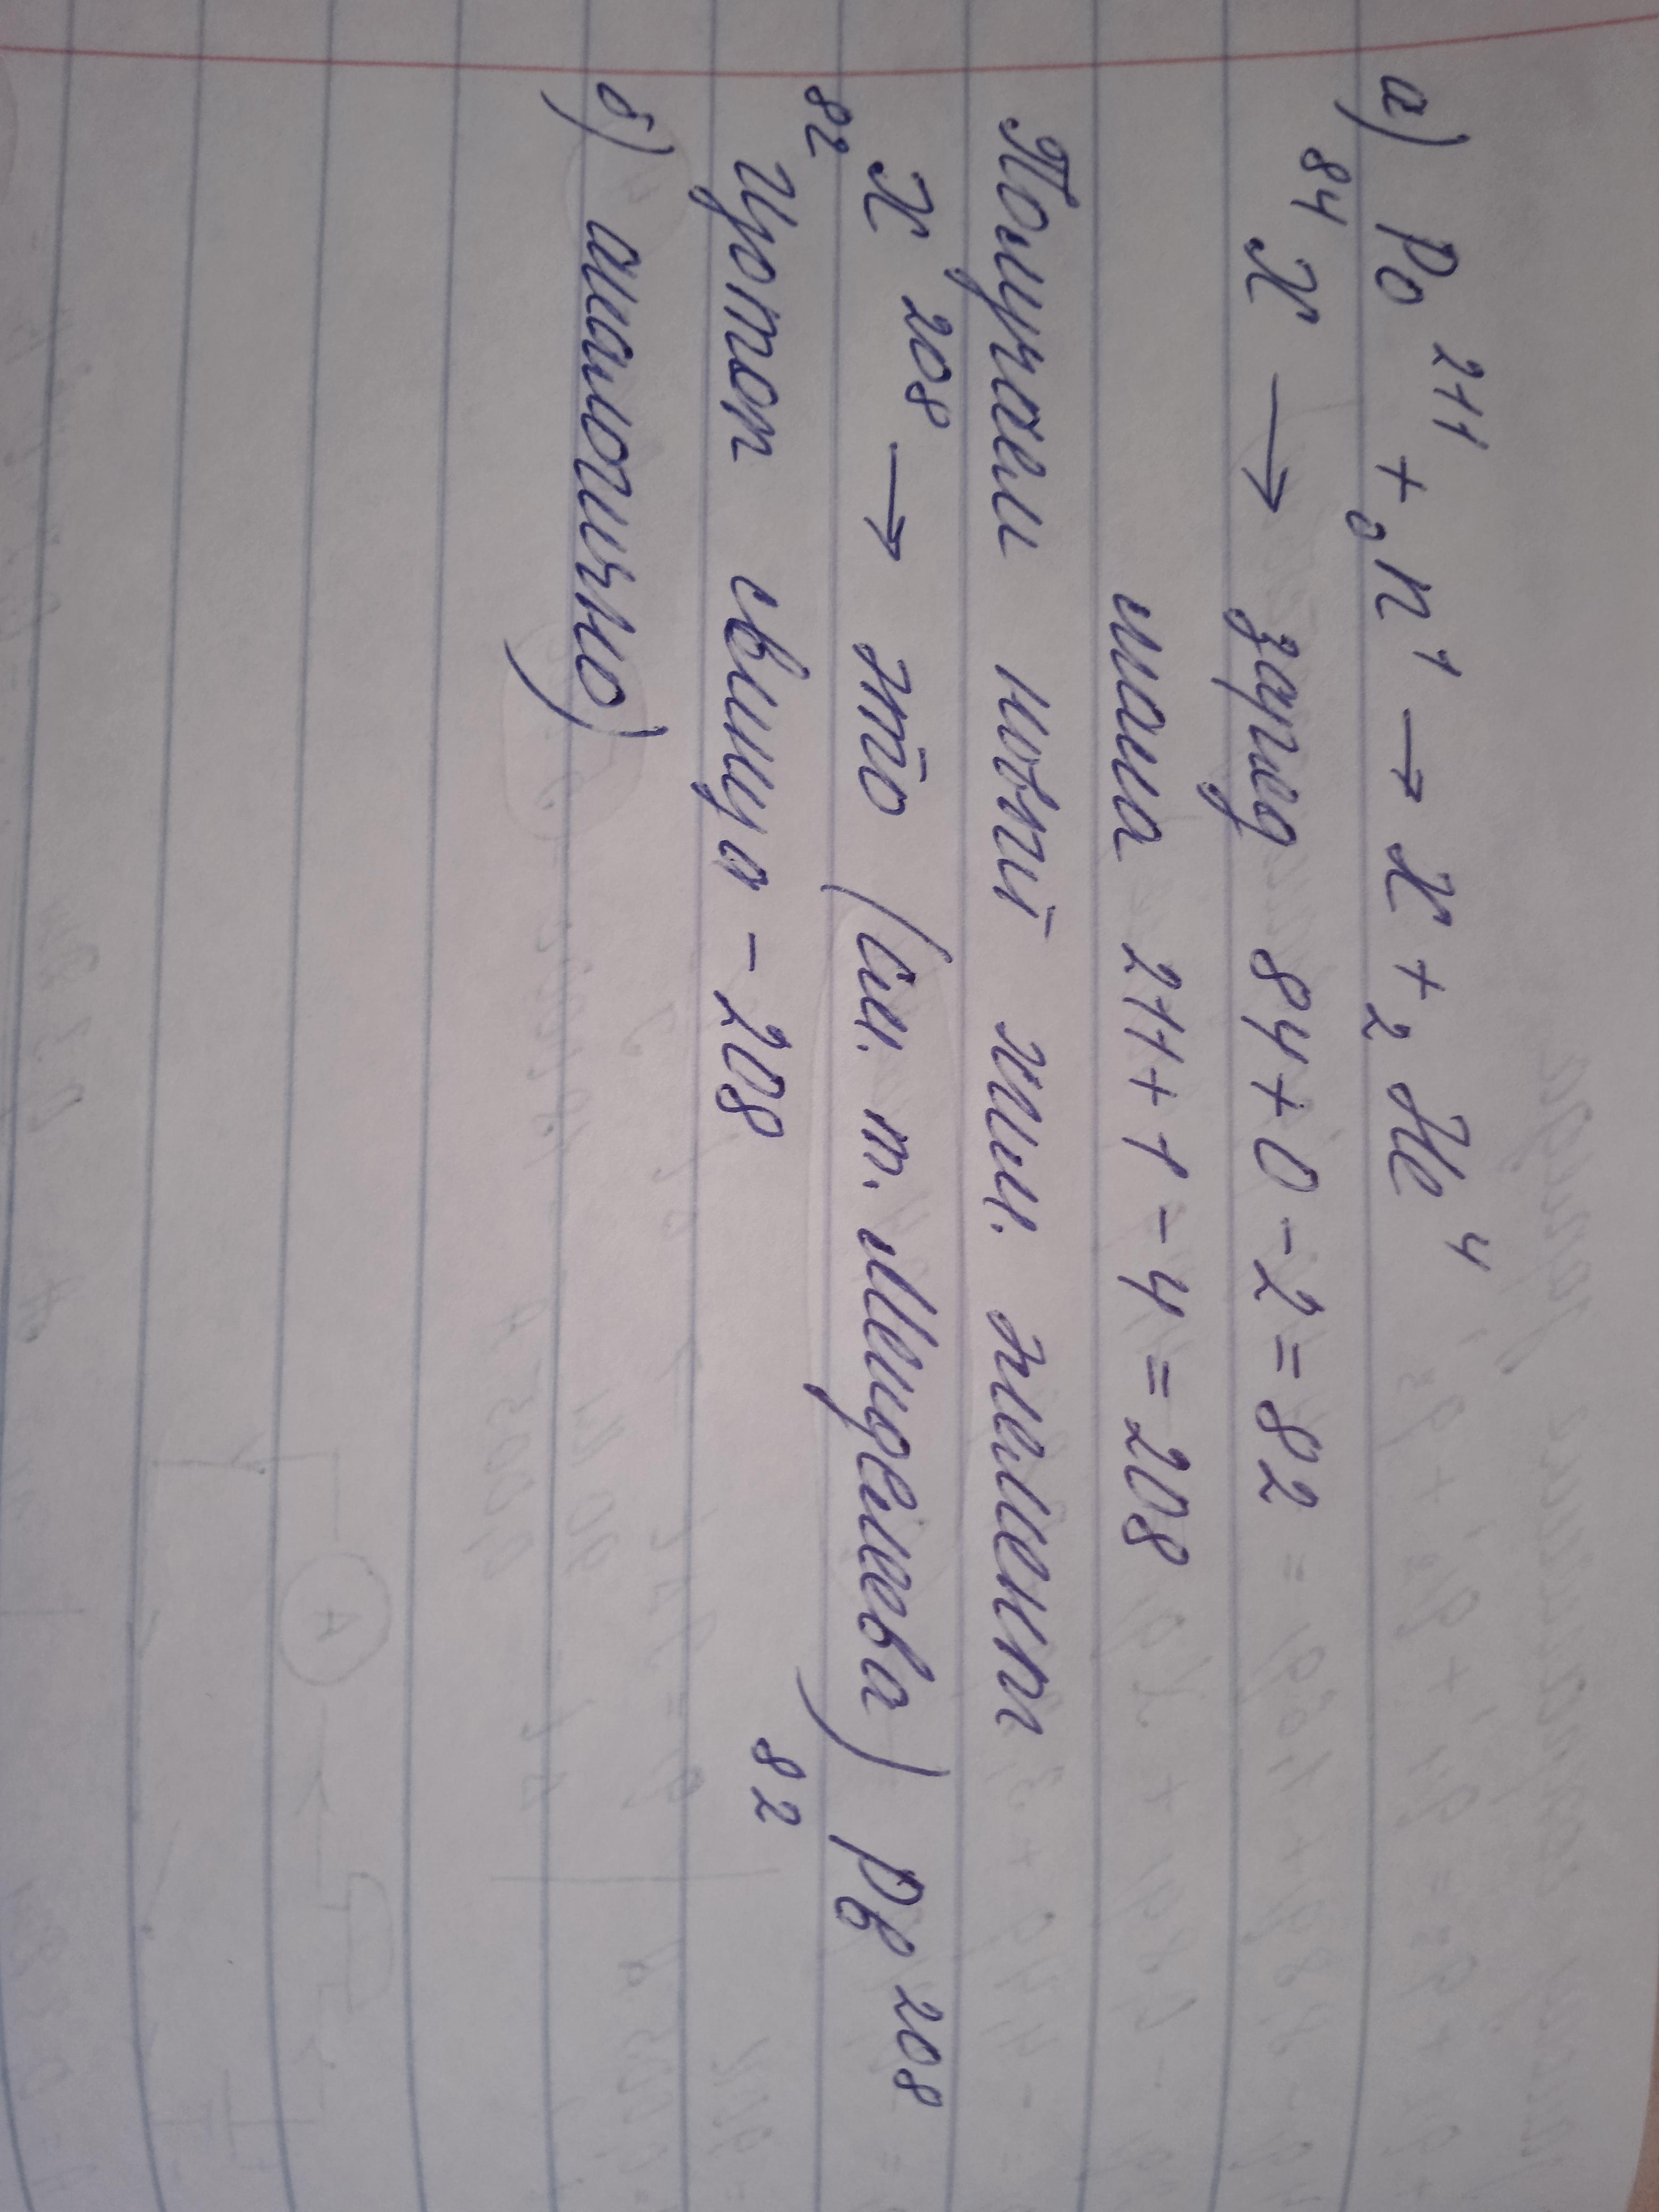 а) Po 211 + 0 n 1 → X + 2 He 4
84 X → заряд 84 + 0 - 2 = 82
масса 211 + 1 - 4 = 208
Получаем новый хим. элемент
X 208 → это (см. т. Менделеева) Pb 208
82 82
Изотоп свинца - 208
б) аналогично)